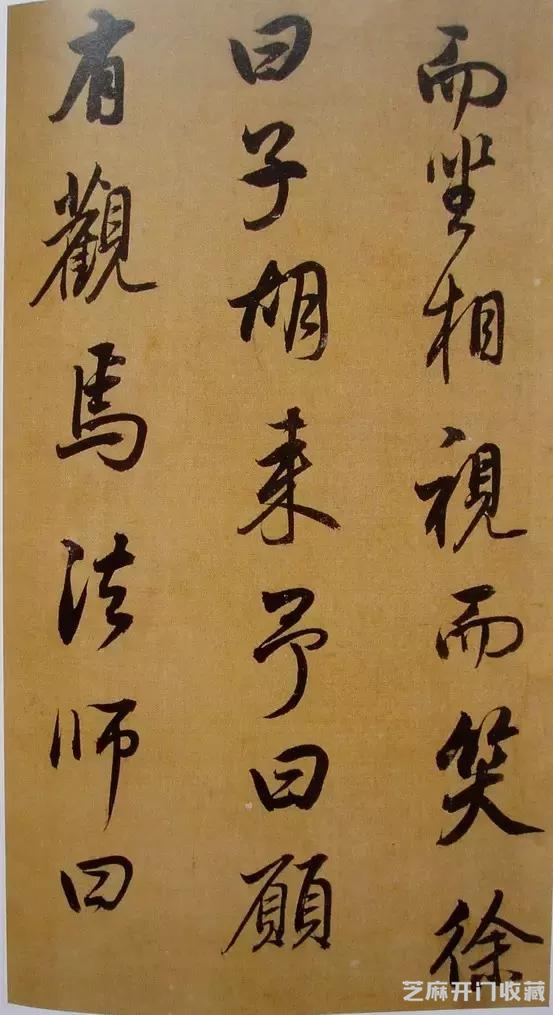 而坐相視而笑徐
曰子胡来予曰願
有觀焉法师曰
芝麻开门收藏